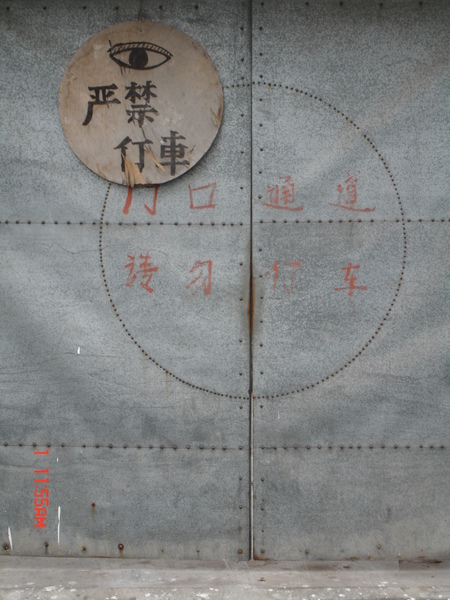 严禁
仃車
门口通道
请勿仃车
1 11:55AM